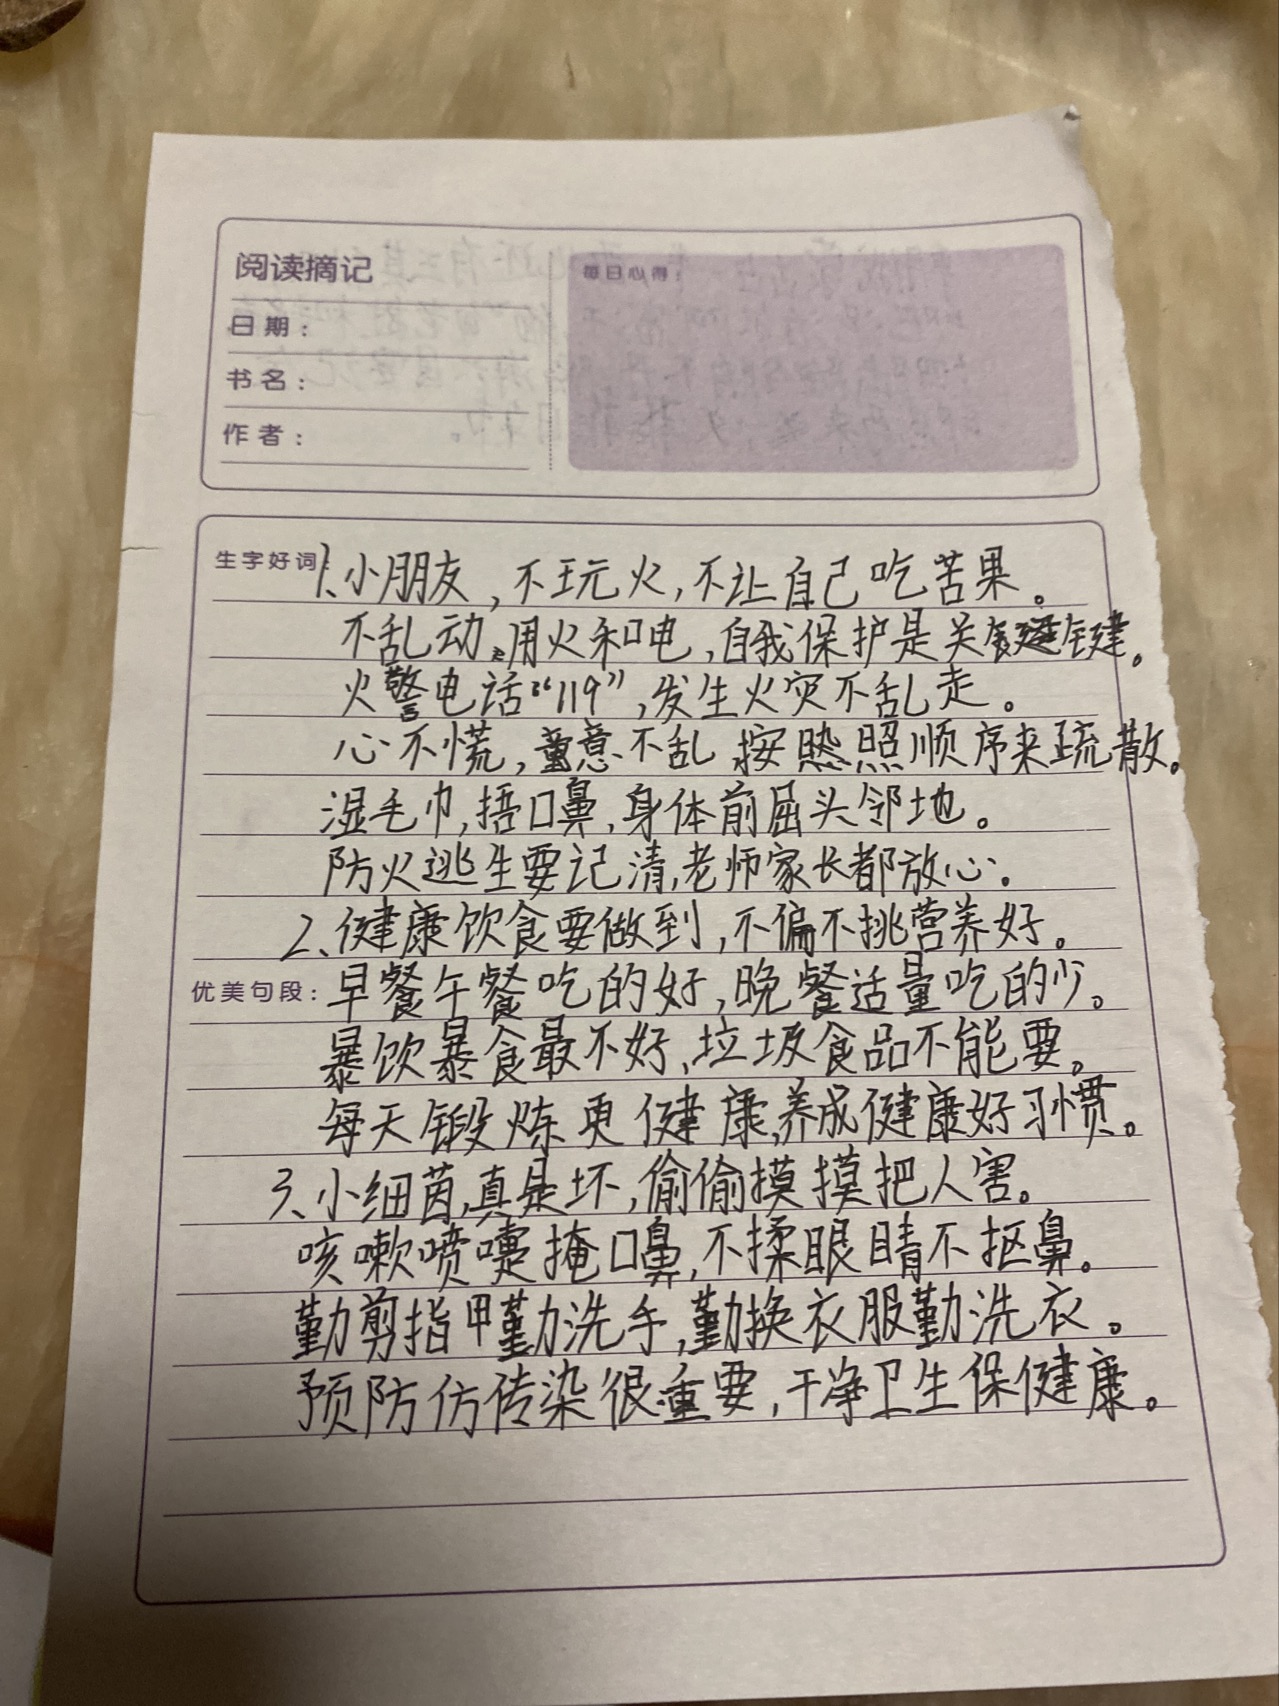 阅读摘记
日期：
书名：
作者：
每日心得：
生字好词：
1、小朋友，不玩火，不让自己吃苦果。
不乱动，用火和电，自我保护是关键。
火警电话“119”，发生火灾不乱走。
心不慌，意不乱 按照顺序来疏散。
湿毛巾，捂口鼻，身体前屈头邻地。
防火逃生要记清，老师家长都放心。
2、健康饮食要做到，不偏不挑营养好。
优美句段：
早餐午餐吃的好，晚餐适量吃的少。
暴饮暴食最不好，垃圾食品不能要。
每天锻炼更健康，养成健康好习惯。
3、小细菌，真是坏，偷偷摸摸把人害。
咳嗽喷嚏掩口鼻，不揉眼睛不抠鼻。
勤剪指甲勤洗手，勤换衣服勤洗衣。
预防仿传染很重要，干净卫生保健康。